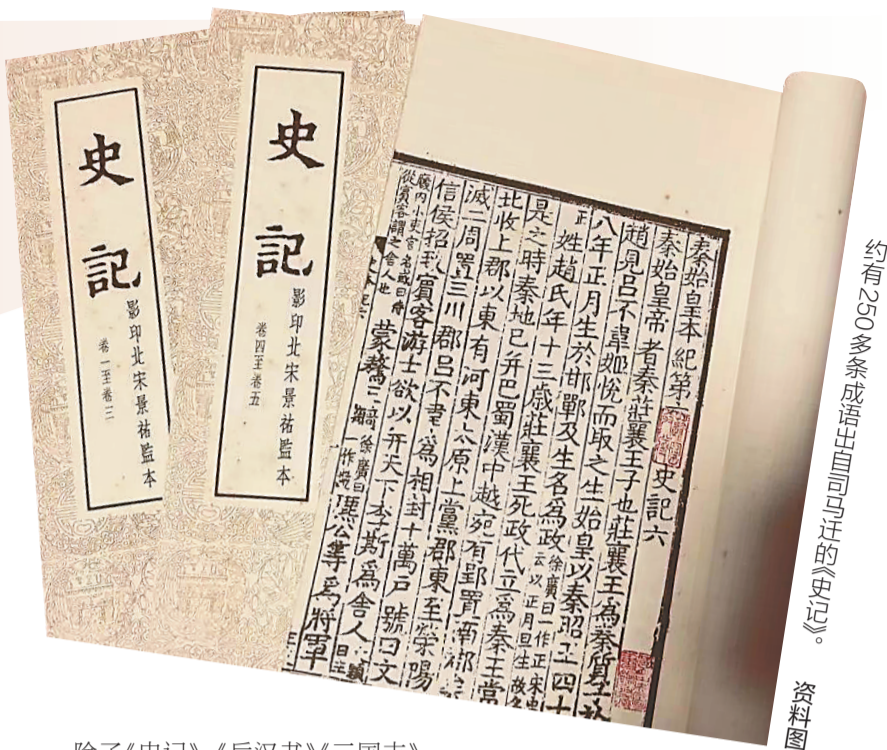 史記
影印北宋景祐監本
卷一至卷三
史記
影印北宋景祐監本
卷四至卷五
秦始皇本紀第
史記六
秦始皇帝者秦莊襄王子也莊襄王為秦質子於
趙見呂不韋姬悅而取之生始皇以秦昭王四十
八年正月生於邯鄲及生名為政徐廣曰一作正宋忠
云以正月旦生故名
正
姓趙氏年十三歲莊襄王死政代立為秦王當
是之時秦地已并巴蜀漢中越宛有郢置南郡
北收上郡以東有河東太原上黨郡東至滎陽
滅二周置三川郡呂不韋為相封十萬戶號曰文
信侯招致賓客游士欲以并天下李斯為舍人
蒙驁
徐廣曰
一作
麃公等為將軍
约有250多条成语出自司马迁的《史记》。
资料图
除了《史记》《后汉书》《三国志》